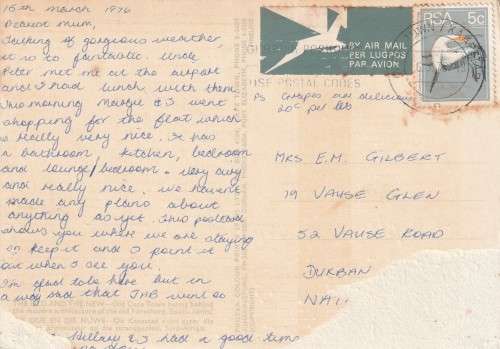 15th March 1976
Dearest Mum,
Talking of gorgious weather,
it is so fantastic. Uncle
Peter met me at the airport
and I had lunch with them.
This morning Margie & I went
shopping for the flat which
is really very nice. It has
a bathroom, kitchen, bedroom
and lounge/bedroom. Very cosy
and really nice. We haven't
made any plans about
anything as yet. This postcard
shows you where we are staying
so keep it and I point it
out when I see you.
I'm glad to be here but in
a way sad that JHB went so
Hillary & I had a good time
BY AIR MAIL
PER LUGPOS
PAR AVION
RSA 5c
USE POSTAL CODES
PS Grapes are delicious
20c per lb
MRS E.M. GILBERT
19 VAUSE GLEN
52 VAUSE ROAD
DURBAN
NA